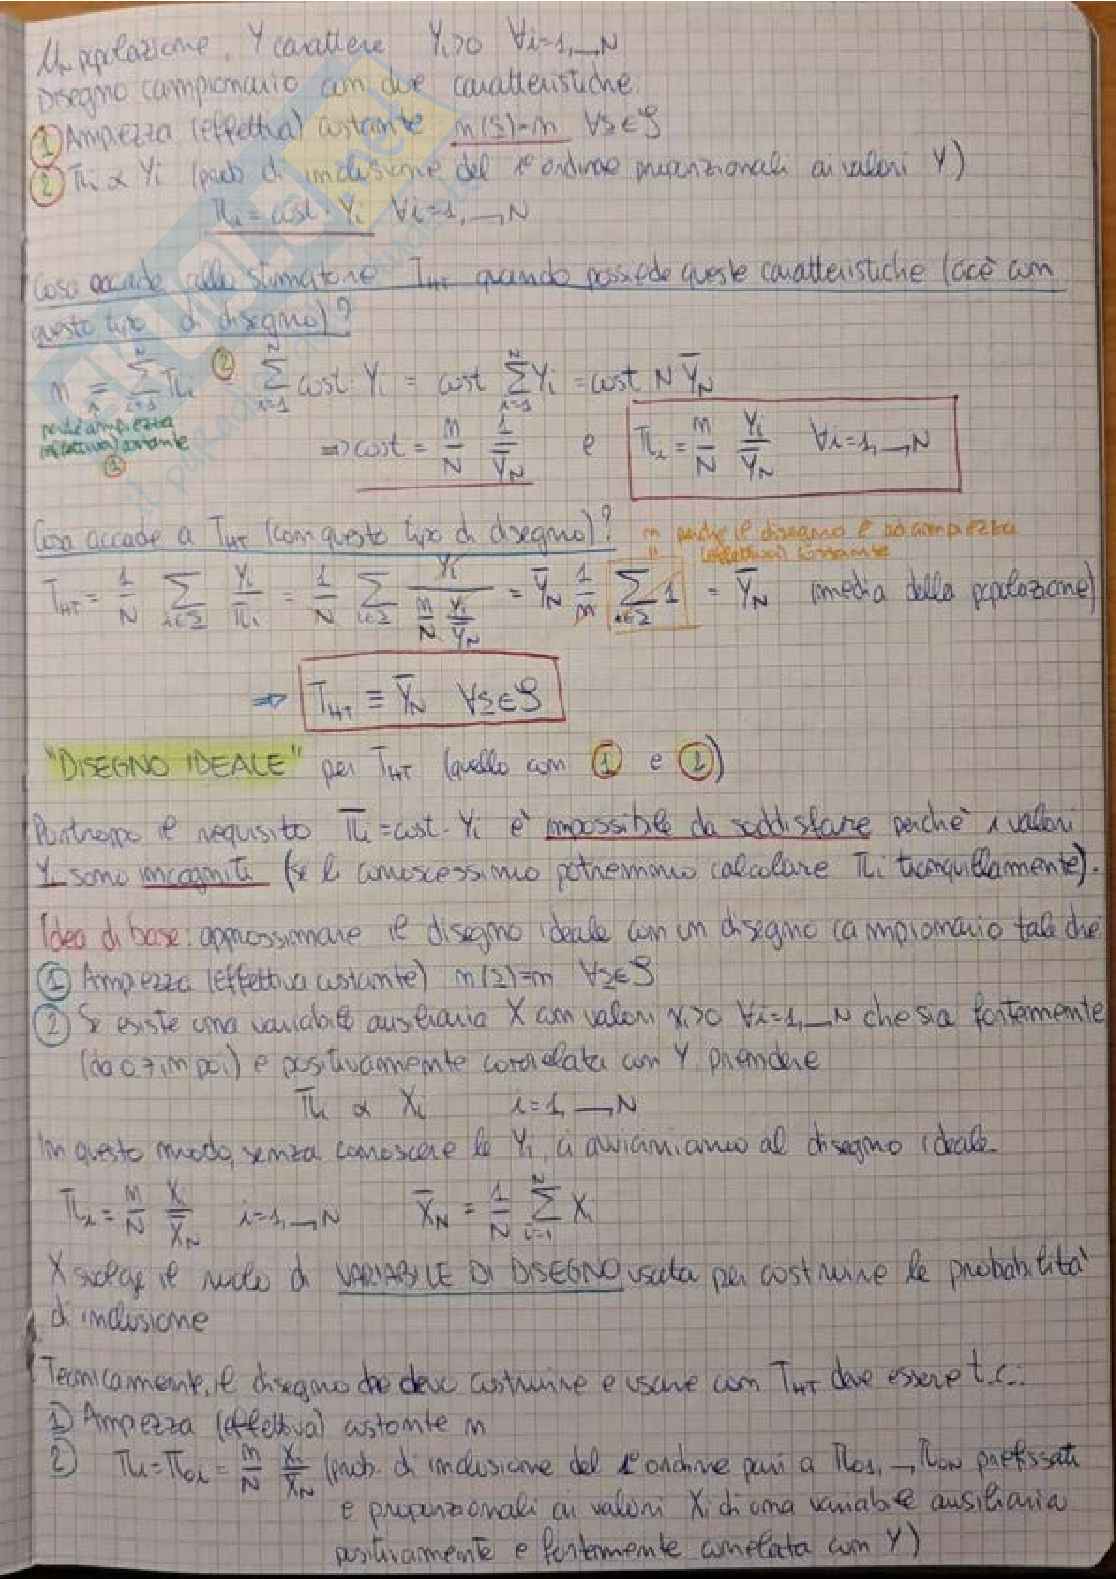 U_N popolazione, Y carattere Yi>0 ∀i=1,...,N
Disegno campionario con due caratteristiche
① Ampiezza (effettiva) costante n(s)=n ∀s∈S
② πi ∝ Yi (prob. di inclusione del 1° ordine proporzionali ai valori Y)
πi = cost · Yi ∀i=1,...,N
Cosa accade allo stimatore T_HT quando possiede queste caratteristiche (cioè con
questo tipo di disegno)?
n = Σ_{i=1}^{N} πi ②= Σ_{i=1}^{N} cost · Yi = cost Σ_{i=1}^{N} Yi = cost N Ȳ_N
perchè ampiezza
(effettiva) costante
①
⇒ cost = n/N 1/Ȳ_N e πi = n/N Yi/Ȳ_N ∀i=1,...,N
Cosa accade a T_HT (con questo tipo di disegno)?
n perchè il disegno è ad ampiezza
(effettiva) costante
T_HT = 1/N Σ_{i∈s} Yi/πi = 1/N Σ_{i∈s} Yi/(n/N Yi/Ȳ_N) = Ȳ_N 1/n Σ_{i∈s} 1 = Ȳ_N (media della popolazione)
⇒ T_HT ≡ Ȳ_N ∀s∈S
"DISEGNO IDEALE" per T_HT (quello con ① e ②)
Purtroppo il requisito πi = cost · Yi è impossibile da soddisfare perchè i valori
Yi sono incogniti (se li conoscessimo potremmo calcolare πi tranquillamente).
Idea di base: approssimare il disegno ideale con un disegno campionario tale che
① Ampiezza (effettiva costante) n(s)=n ∀s∈S
② Se esiste una variabile ausiliaria X con valori xi>0 ∀i=1,...,N che sia fortemente
(da 0.7 in poi) e positivamente correlata con Y prendere
πi ∝ Xi i=1,...,N
In questo modo, senza conoscere le Yi, ci avviciniamo al disegno ideale
πi = n/N Xi/X̄_N i=1,...,N X̄_N = 1/N Σ_{i=1}^{N} Xi
X svolge il ruolo di VARIABILE DI DISEGNO usata per costruire le probabilità
di inclusione
Tecnicamente, il disegno che devo costruire e usare con T_HT deve essere t.c.:
1) Ampiezza (effettiva) costante n
2) πi = π0i = n/N Xi/X̄_N (prob. di inclusione del 1° ordine pari a π01,...,π0N prefissati
e proporzionali ai valori Xi di una variabile ausiliaria
positivamente e fortemente correlata con Y)